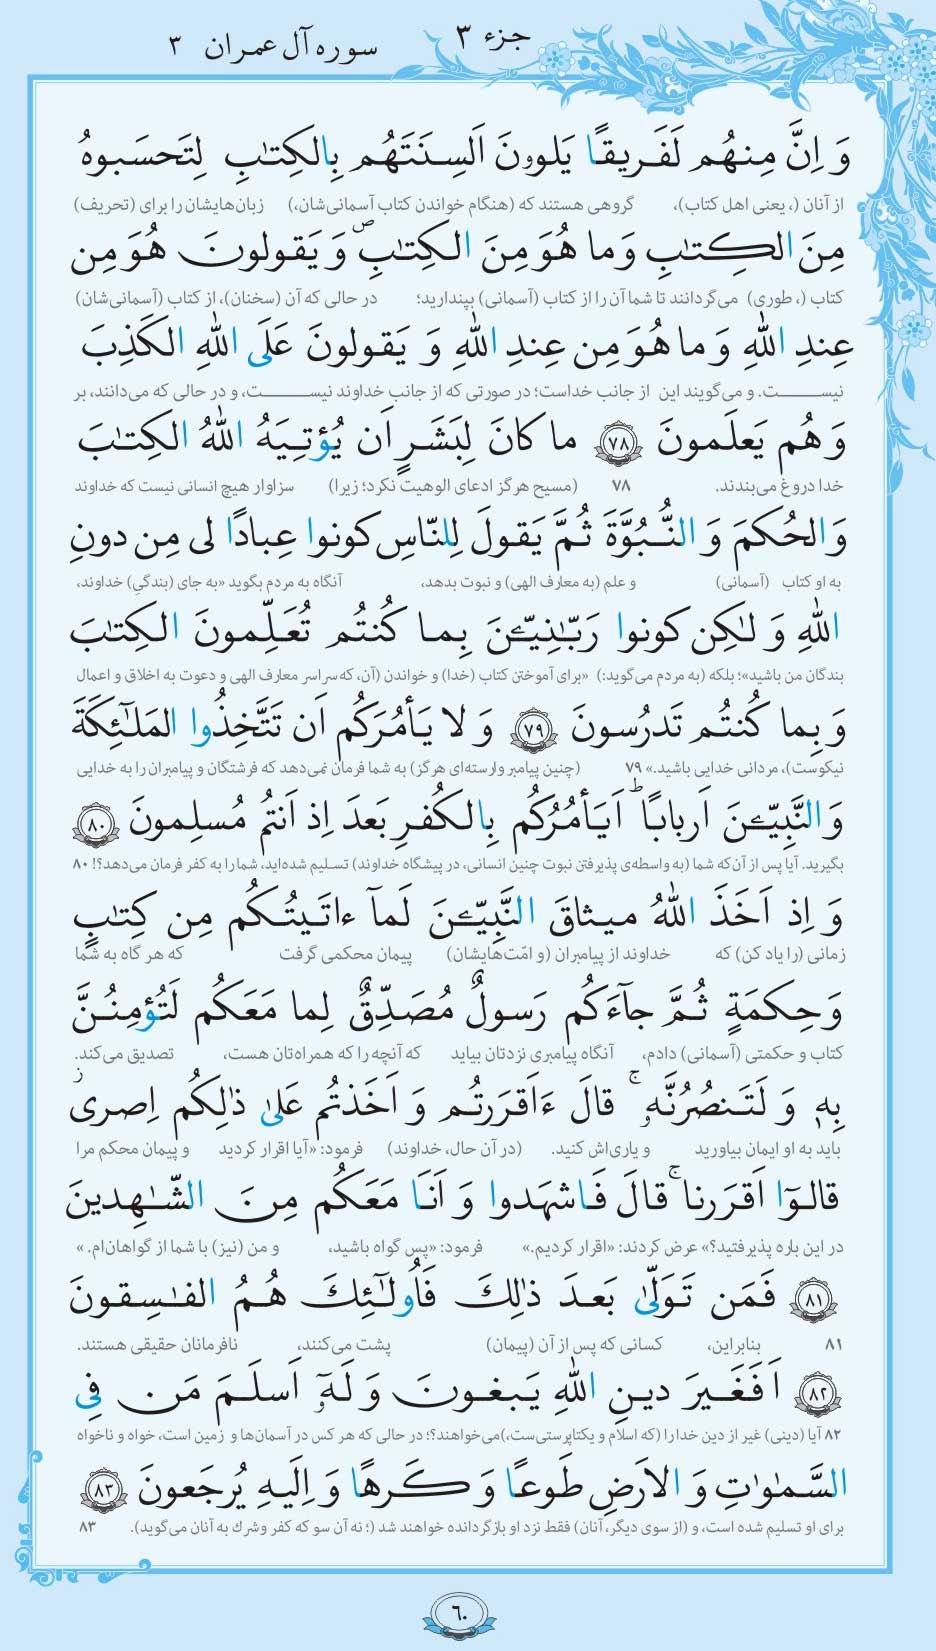 جزء ۳
سوره آل عمران ۳
وَ اِنَّ مِنهُم لَفَريقًا يَلوۥنَ اَلسِنَتَهُم بِالكِتٰبِ لِتَحسَبوهُ
از آنان (، یعنی اهل کتاب)، گروهی هستند که (هنگام خواندن کتاب آسمانی‌شان،) زبان‌هایشان را برای (تحریف)
مِنَ الكِتٰبِ وَ ما هُوَ مِنَ الكِتٰبِۖ وَ يَقولونَ هُوَ مِن
کتاب (، طوری) می‌گردانند تا شما آن را از کتاب (آسمانی) بپندارید؛ در حالی که آن (سخنان)، از کتاب (آسمانی‌شان)
عِندِ اللّٰهِ وَ ما هُوَ مِن عِندِ اللّٰهِ وَ يَقولونَ عَلَى اللّٰهِ الكَذِبَ
نیست. و می‌گویند این از جانب خداست؛ در صورتی که از جانب خداوند نیست، و در حالی که می‌دانند، بر
وَ هُم يَعلَمونَ ﴿۷۸﴾ ما كانَ لِبَشَرٍ اَن يُؤتِيَهُ اللّٰهُ الكِتٰبَ
خدا دروغ می‌بندند. ۷۸ (مسیح هرگز ادعای الوهیت نکرد؛ زیرا) سزاوار هیچ انسانی نیست که خداوند
وَ الحُكمَ وَ النُّبُوَّةَ ثُمَّ يَقولَ لِلنّاسِ كونوا عِبادًا لى مِن دونِ
به او کتاب (آسمانی) و علم (به معارف الهی) و نبوت بدهد، آنگاه به مردم بگوید «به جای (بندگیِ) خداوند،
اللّٰهِ وَ لٰكِن كونوا رَبّٰنِيّـۧنَ بِما كُنتُم تُعَلِّمونَ الكِتٰبَ
بندگان من باشید»؛ بلکه (به مردم می‌گوید:) «برای آموختن کتاب (خدا) و خواندن (آن، که سراسر معارف الهی و دعوت به اخلاق و اعمال
وَ بِما كُنتُم تَدرُسونَ ﴿۷۹﴾ وَ لا يَأمُرَكُم اَن تَتَّخِذُوا المَلٰٓئِكَةَ
نیکوست)، مردانی خدایی باشید.» ۷۹ (چنین پیامبر وارسته‌ای هرگز) به شما فرمان نمی‌دهد که فرشتگان و پیامبران را به خدایی
وَ النَّبِيّـۧنَ اَربابًاؕ اَيَأمُرُكُم بِالكُفرِ بَعدَ اِذ اَنتُم مُسلِمونَ ﴿۸۰﴾
بگیرید. آیا پس از آن‌که شما (به واسطه‌ی پذیرفتن نبوت چنین انسانی، در پیشگاه خداوند) تسلیم شده‌اید، شما را به کفر فرمان می‌دهد؟! ۸۰
وَ اِذ اَخَذَ اللّٰهُ ميثاقَ النَّبِيّـۧنَ لَمآ ءاتَيتُكُم مِن كِتٰبٍ
زمانی (را یاد کن) که خداوند از پیامبران (و امّت‌هایشان) پیمان محکمی گرفت که هر گاه به شما
وَ حِكمَةٍ ثُمَّ جآءَكُم رَسولٌ مُصَدِّقٌ لِما مَعَكُم لَتُؤمِنُنَّ
کتاب و حکمتی (آسمانی) دادم، آنگاه پیامبری نزدتان بیاید که آنچه را که همراه‌تان هست، تصدیق می‌کند.
بِهٖ وَ لَتَنصُرُنَّهٗۚ قالَ ءَاَقرَرتُم وَ اَخَذتُم عَلىٰ ذٰلِكُم اِصرىۖ
باید به او ایمان بیاورید و یاری‌اش کنید. (در آن حال، خداوند) فرمود: «آیا اقرار کردید و پیمان محکم مرا
قالوٓا اَقرَرناۚ قالَ فَاشهَدوا وَ اَنَا مَعَكُم مِنَ الشّٰهِدينَ
در این باره پذیرفتید؟» عرض کردند: «اقرار کردیم.» فرمود: «پس گواه باشید، و من (نیز) با شما از گواهان‌ام.»
﴿۸۱﴾ فَمَن تَوَلّىٰ بَعدَ ذٰلِكَ فَاُولٰٓئِكَ هُمُ الفٰسِقونَ
۸۱ بنابراین، کسانی که پس از آن (پیمان) پشت می‌کنند، نافرمانان حقیقی هستند.
﴿۸۲﴾ اَفَغَيرَ دينِ اللّٰهِ يَبغونَ وَ لَهٗٓ اَسلَمَ مَن فِى
۸۲ آیا (دینی) غیر از دین خدا را (که اسلام و یکتاپرستی‌ست،) می‌خواهند؟؛ در حالی که هر کس در آسمان‌ها و زمین است، خواه و ناخواه
السَّمٰوٰتِ وَ الاَرضِ طَوعًا وَ كَرهًا وَ اِلَيهِ يُرجَعونَ ﴿۸۳﴾
برای او تسلیم شده است، و (از سوی دیگر، آنان) فقط نزد او بازگردانده خواهند شد (؛ نه آن سو که کفر و شرك به آنان می‌گوید). ۸۳
۶۰